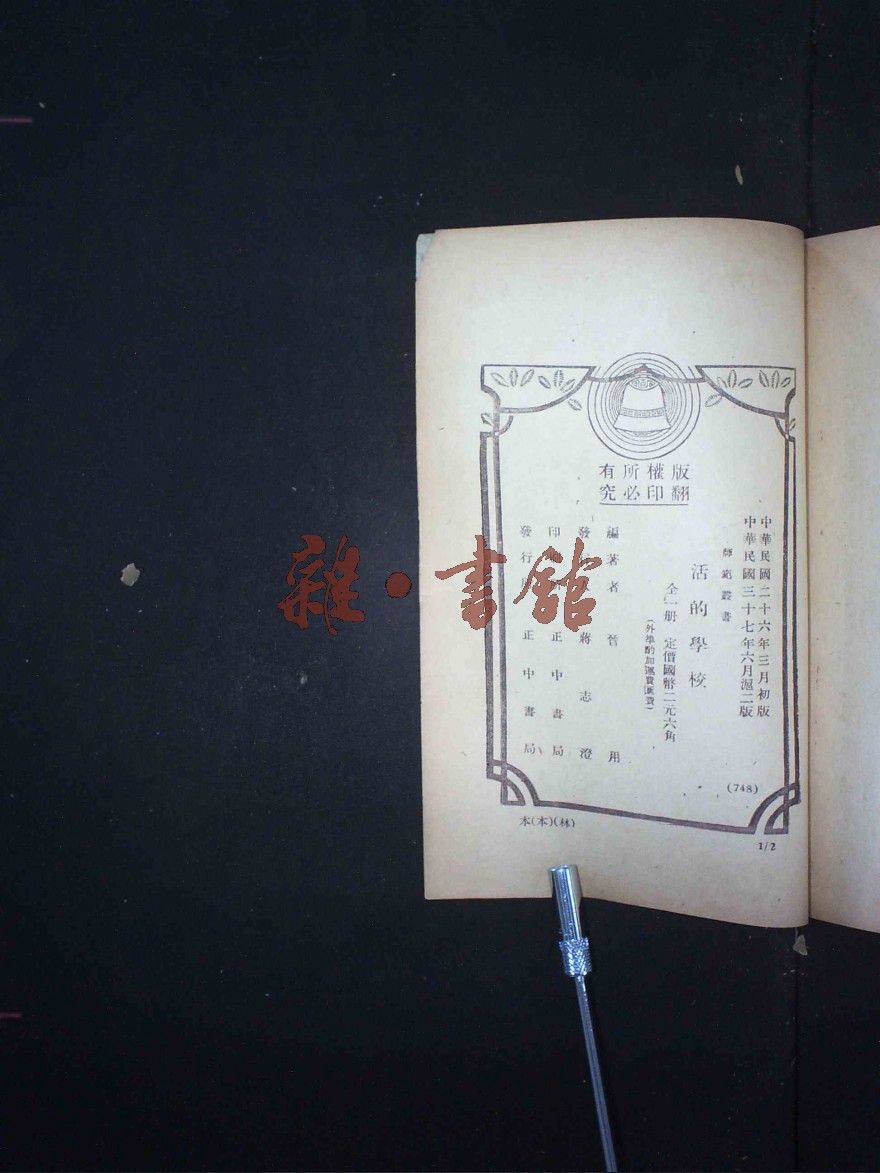 版權所有
翻印必究
中華民國二十六年三月初版
中華民國三十七年六月滬二版
師範叢書
活的學校
全一册 定價國幣二元六角
(外埠酌加運費匯費)
編著者 晉用
發 蔣志澄
印 正中書局
發行 正中書局
(748)
本(本)(林)
1/2
雜·書館